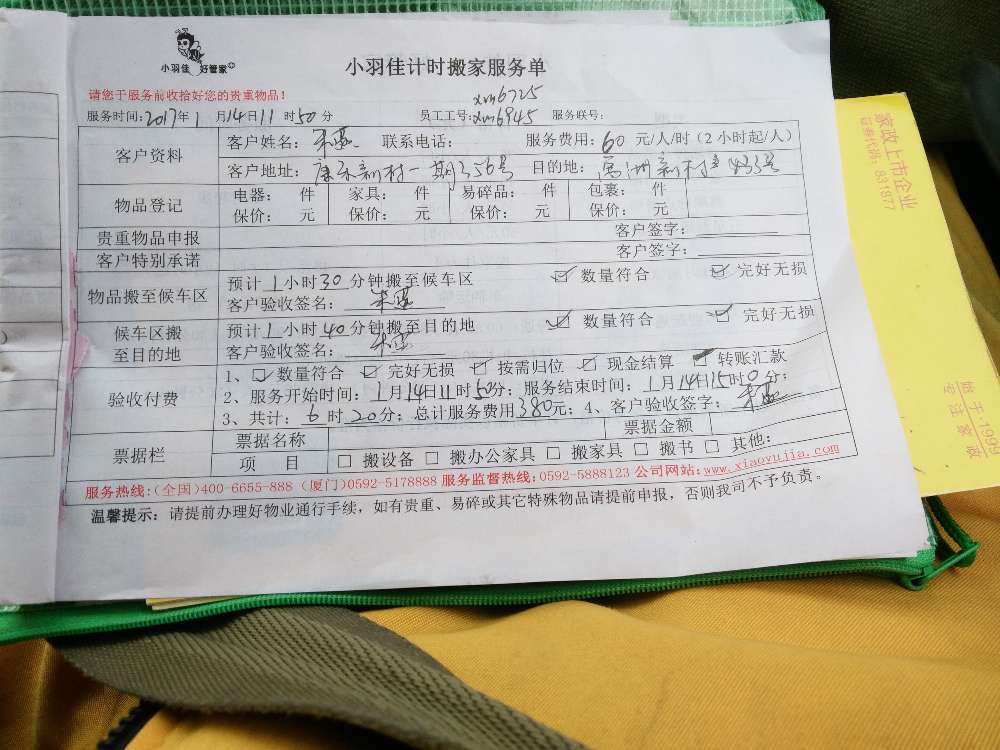 小羽佳 好管家
小羽佳计时搬家服务单
请您于服务前收拾好您的贵重物品!
xm6725
服务时间:2017年1月14日11时50分 员工工号:xm6945 服务联号:
客户资料 客户姓名: 联系电话: 服务费用:60元/人/时(2小时起/人)
客户地址:康乐新村一期356号 目的地:新村 433号
物品登记 电器: 件 家具: 件 易碎品: 件 包裹: 件
保价: 元 保价: 元 保价: 元 保价: 元
贵重物品申报 客户签字:
客户特别承诺 客户签字:
物品搬至候车区 预计1小时30分钟搬至候车区 ☑ 数量符合 ☑ 完好无损
客户验收签名:
候车区搬至目的地 预计1小时40分钟搬至目的地 ☑ 数量符合 ☑ 完好无损
客户验收签名:
验收付费 1、☑ 数量符合 ☑ 完好无损 ☑ 按需归位 ☑ 现金结算 转账汇款
2、服务开始时间:1月14日11时50分;服务结束时间:1月14日15时0分;
3、共计:6时20分;总计服务费用380元;4、客户验收签字:
票据栏 票据名称 票据金额
项 目 □ 搬设备 □ 搬办公家具 □ 搬家具 □ 搬书 □ 其他:
服务热线:(全国)400-6655-888 (厦门)0592-5178888 服务监督热线:0592-5888123 公司网站:www.xiaoyujia.com
温馨提示:请提前办理好物业通行手续,如有贵重、易碎或其它特殊物品请提前申报,否则我司不予负责。
家政上市企业
证券代码:831877
始于1999
专注家政